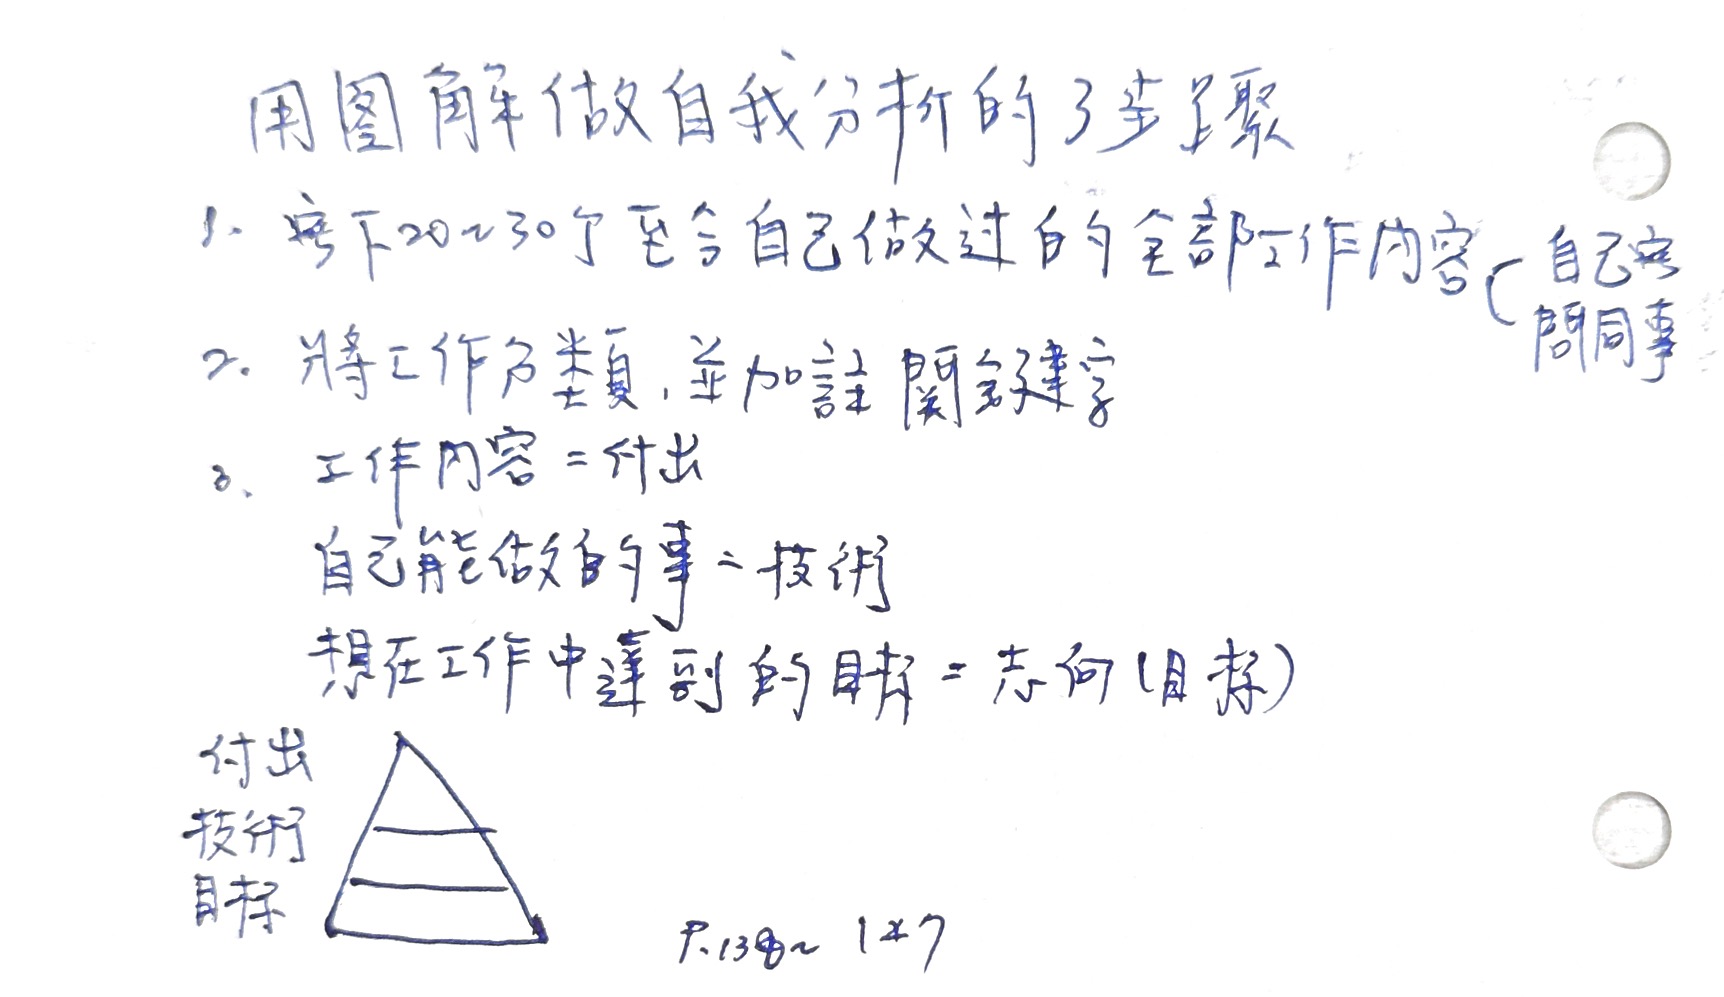 用图解做自我分析的3步骤
1. 寫下20~30个至今自己做过的全部工作内容(自己寫
問同事
2. 將工作分類,並加註關鍵字
3. 工作内容=付出
自己能做的事=技術
想在工作中達到的目標=志向(目標)
付出
技術
目標
P.138~